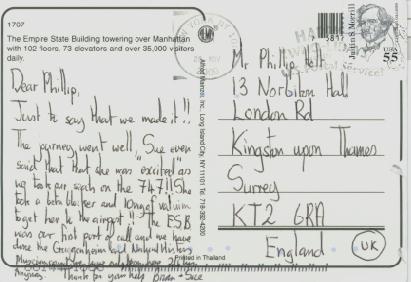 1707
The Empire State Building towering over Manhattan
with 102 floors, 73 elevators and over 35,000 visitors
daily.
Dear Phillip,
Just to say that we made it!!
The journey went well, "Sue even
said that that she was excited" as
we took our seats on the 747!! She
took a beta blocker and 10mg of valium
to get her to the airport!! The ESB
was our first port of call and we have
done the Guggenheim and Natural History
Museum
Thanks for your help Brian + Sue
Alfred Mainzer, Inc. Long Island City, NY 11101 Tel. 718-392-4200
Printed in Thailand
Justin S. Morrill
USA
55
Mr Phillip
13 Norbiton Hall
London Rd
Kingston upon Thames
Surrey
KT2 6RA
England
UK